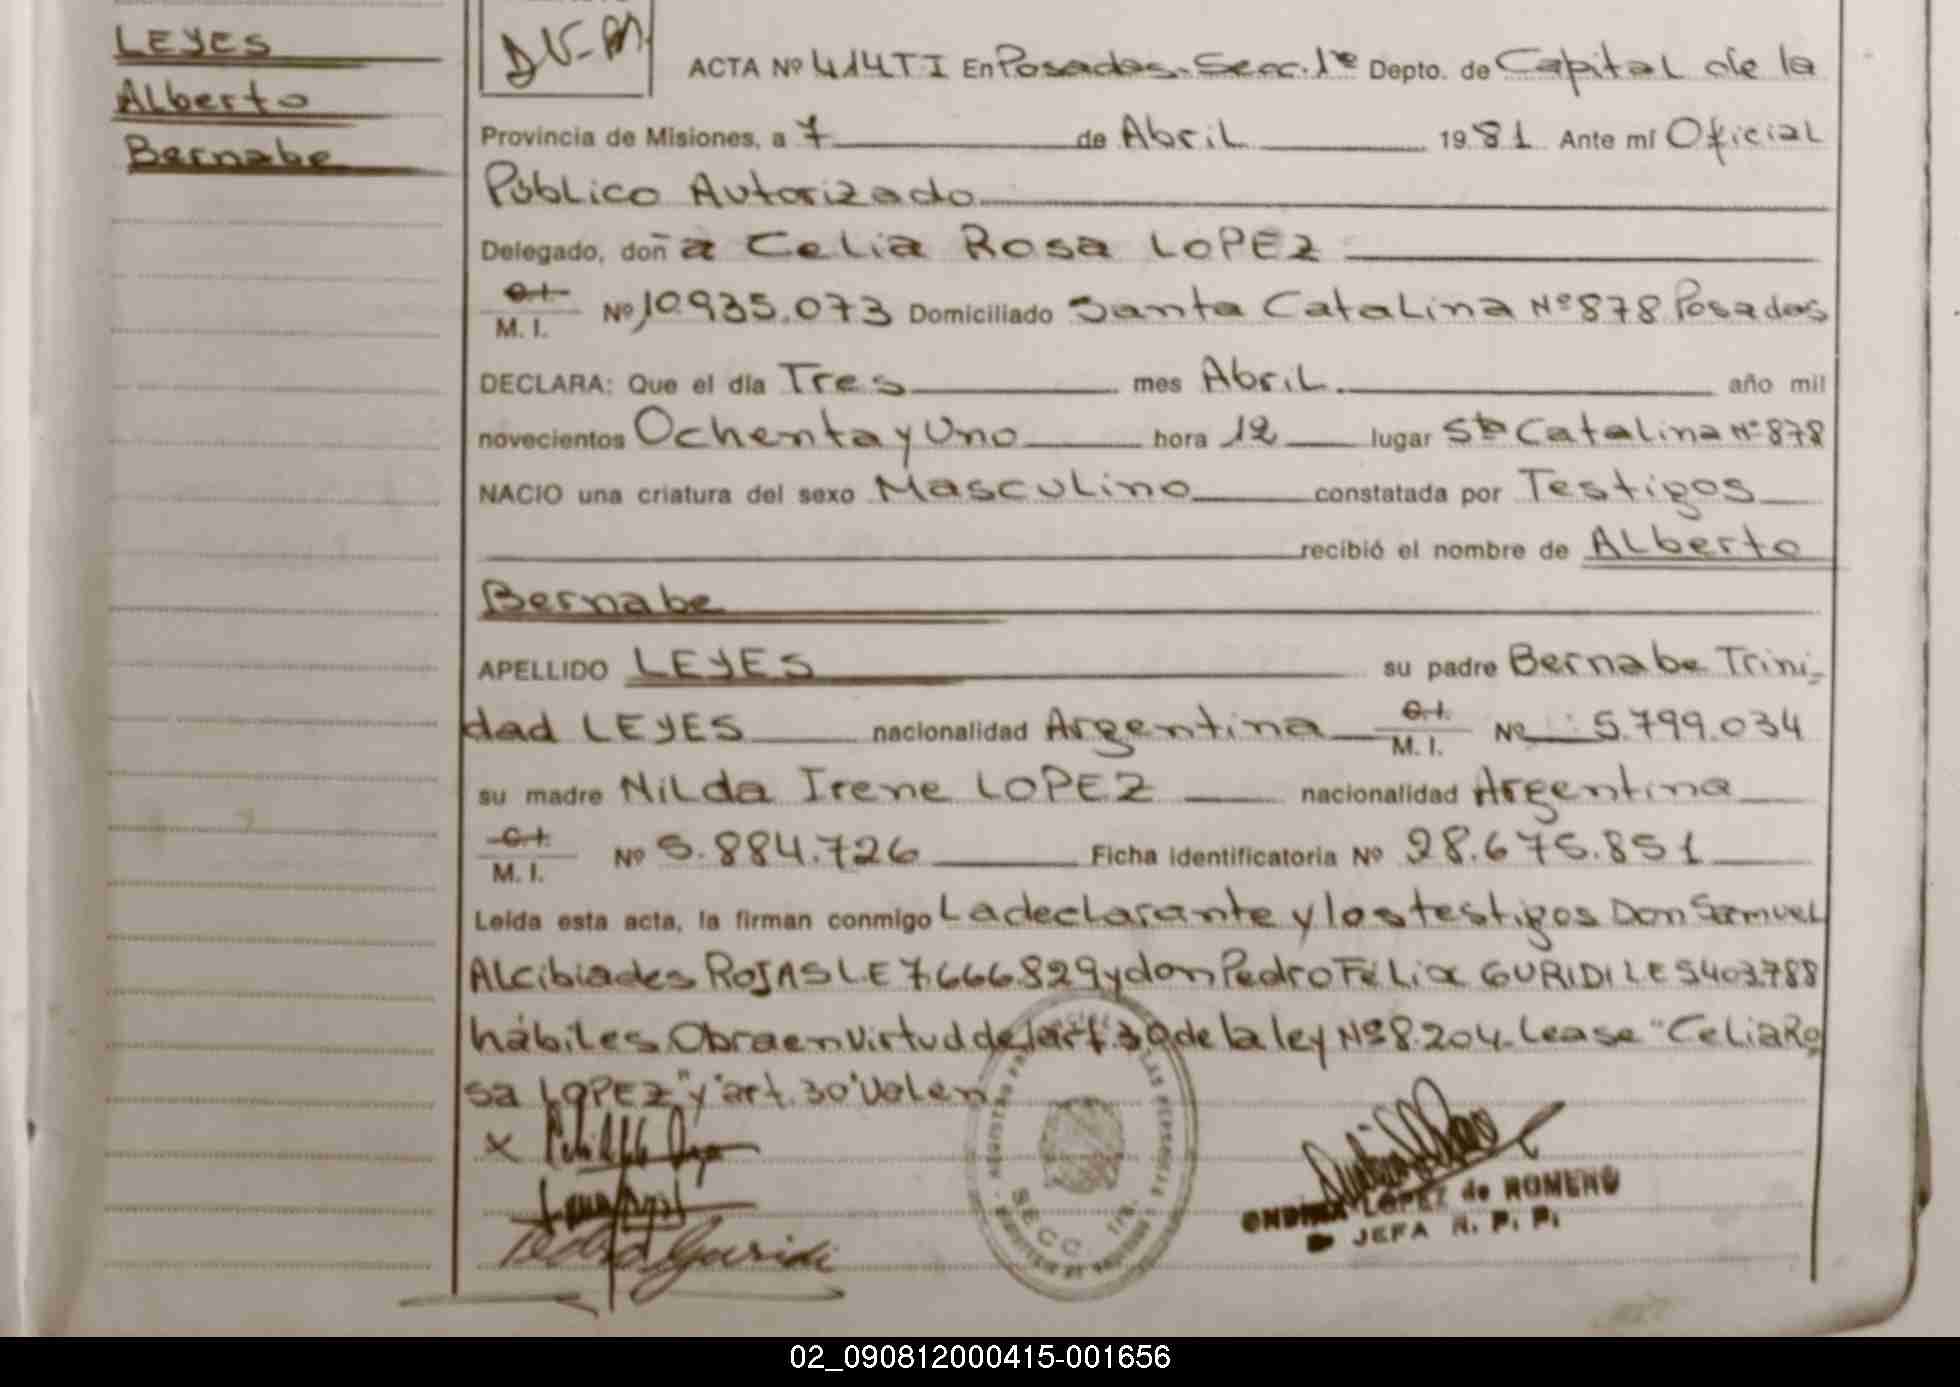 LEYES
Alberto
Bernabe
DN-M.
ACTA Nº 414 T I En Posadas. Secc. 1ª Depto. de Capital de la
Provincia de Misiones, a 7 de Abril 1981 Ante mí Oficial
Público Autorizado
Delegado, doña Celia Rosa LOPEZ
C.I.
M. I. Nº 10.935.073 Domiciliado Santa Catalina Nº 878 Posadas
DECLARA: Que el día Tres mes Abril. año mil
novecientos Ochenta y Uno hora 12 lugar Sta Catalina Nº 878
NACIO una criatura del sexo Masculino constatada por Testigos
recibió el nombre de Alberto
Bernabe
APELLIDO LEYES su padre Bernabe Trini-
dad LEYES nacionalidad Argentina C.I. M. I. Nº 5.799.034
su madre Nilda Irene LOPEZ nacionalidad Argentina
C.I.
M. I. Nº 5.884.726 Ficha identificatoria Nº 28.675.851
Leída esta acta, la firman conmigo La declarante y los testigos Don Samuel
Alcibiades ROJAS L.E 7.666.829 y don Pedro Félix GURIDI L E 5403.788
hábiles. Obra en virtud del art. 30 de la ley Nº 8.204. Lease "Celia Ro
sa LOPEZ" y "art. 30" Valen
x
Pedro Guridi
SECC. 1ra.
LOPEZ de ROMERO
JEFA R. P. P.
02_090812000415-001656